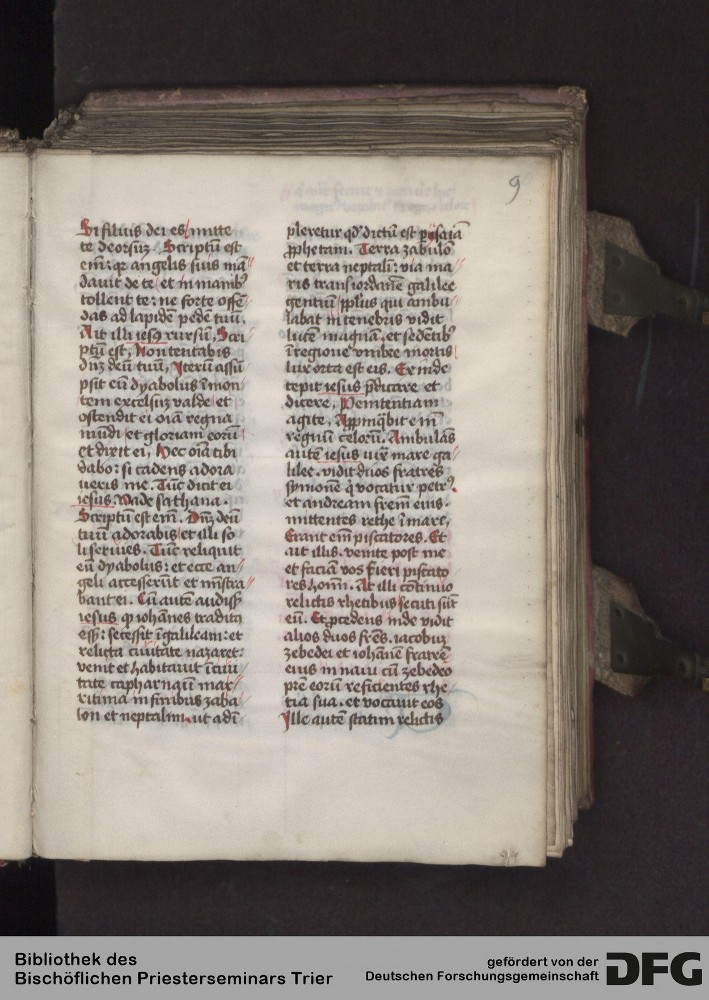 9
Si filius dei es mitte
te deorsuz. Scriptū est
em̄: qꝛ angelis suis mā
dauit de te et in manibꝰ
tollent te: ne forte offē
das ad lapidē pedē tuū.
Ait illi iesꝰ rursū, Scri
ptū est, Non tentabis
dn̄z deū tuū, Iterū assū
psit eū dyabolus ī mon
tem excelsuz valde et
ostendit ei oīa regna
mūdi et gloriam eorū
et dixit ei, Hec oīa tibi
dabo: si cadens adora
ueris me. Tūc dicit ei
iesus. Vade sathana.
Scriptū est em̄. Dn̄z deū
tuū adorabis et illi so
li seruies. Tūc reliquit
eū dyabolus: et ecce an
geli accesserūt et mīstra
bant ei. Cū autē audiss̄
iesus ꝙ iohānes traditꝰ
ess̄: secessit ī galileam: et
relicta ciuitate nazaret:
venit et habitauit ī ciui
tate capharnaū mar
ritima in finibus zabu
lon et neptalim. ut adī
pleretur qd̓ dictū est p ysaiā
ꝓphetam. Terra zabulō
et terra neptali: via ma
ris transiordanē galilee
gentiū pplus qui ambu
labat in tenebris vidit
lucē magnā. et sedētibꝰ
ī regione vmbre mortis
lux orta est eis. Exinde
cepit iesus p̄dicare et
dicere, Penitentiam
agite, Appīqbit em̄
regnū celorū. Ambulās
autē iesus iux̄ mare ga
lilee. vidit duos fratres
symonē q̇ vocatur petrꝰ.
et andream frēm eius.
mittentes rethe ī mare,
Erant em̄ piscatores. Et
ait illis. venite post me
et faciā vos fieri piscato
res hoīm. At illi cōtinuo
relictis rhetibus secuti sūt
eū. Et ꝓcedens inde vidit
alios duos frēs. iacobuz
zebedei et iohānē fratrē
eius in naui cū zebedeo
prē eorū reficientes rhe
tia sua. et vocauit eos
Ille autē statim relictis
Bibliothek des
Bischöflichen Priesterseminars Trier
gefördert von der
Deutschen Forschungsgemeinschaft
DFG